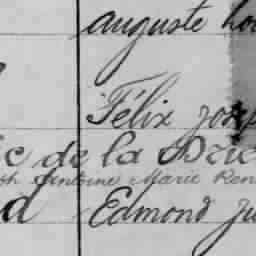 auguste
Félix Josep
de la
Antoine Marie Ren
Edmond Ju